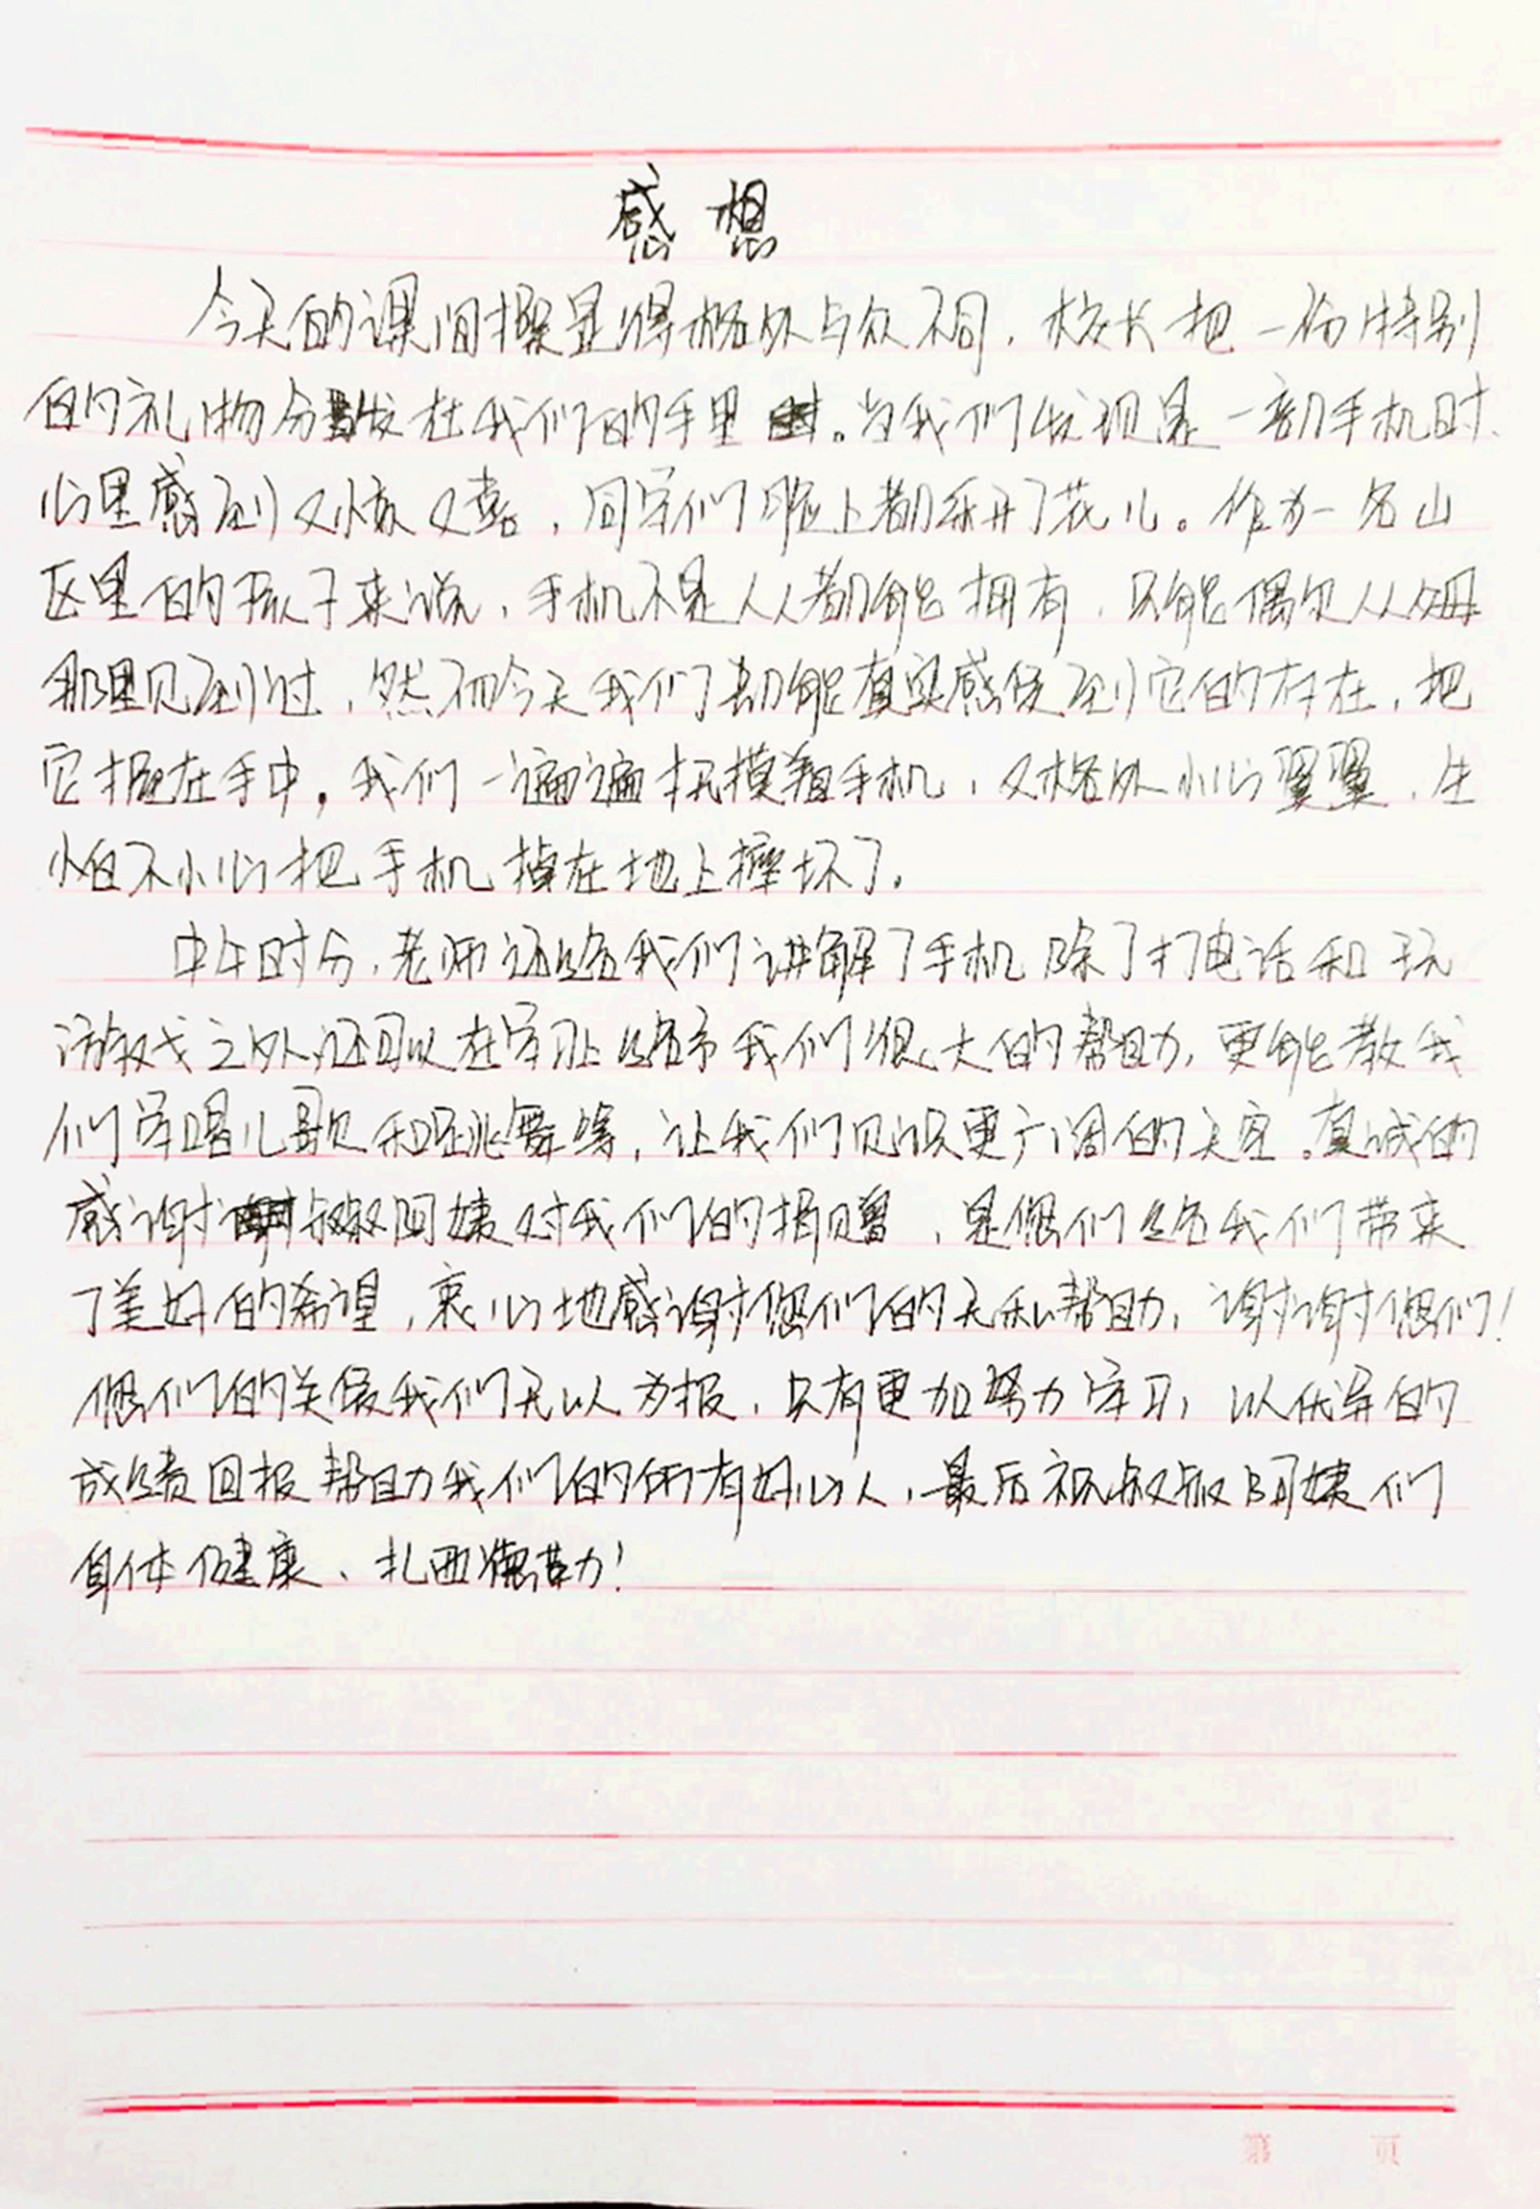 感想
今天的课间操显得格外与众不同，校长把一份特别
的礼物分发在我们的手里。当我们发现是一部手机时，
心里感到又惊又喜，同学们脸上都乐开了花儿。作为一名山
区里的孩子来说，手机不是人人都能拥有，只能偶尔从父母
那里见到过，然而今天我们却能真实感受到它的存在，把
它握在手中，我们一遍遍抚摸着手机，又格外小心翼翼，生
怕不小心把手机掉在地上摔坏了。
中午时分，老师还给我们讲解了手机除了打电话和玩
游戏之外，还可以在学习上给予我们很大的帮助，更能教我
们学唱儿歌和跳舞等，让我们见识更广阔的天空。真诚的
感谢叔叔阿姨对我们的捐赠，是您们给我们带来
了美好的希望，衷心地感谢您们的无私帮助，谢谢您们！
您们的关爱我们无以为报，只有更加努力学习，以优异的
成绩回报帮助我们的所有好心人，最后祝叔叔阿姨们
身体健康、扎西德勒！
第 页